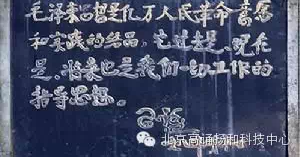 毛泽东思想是亿万人民革命意愿
和实践的结晶，它过去是、现在
是、将来也是我们一切工作的
指导思想。
北京高诵扬和科技中心